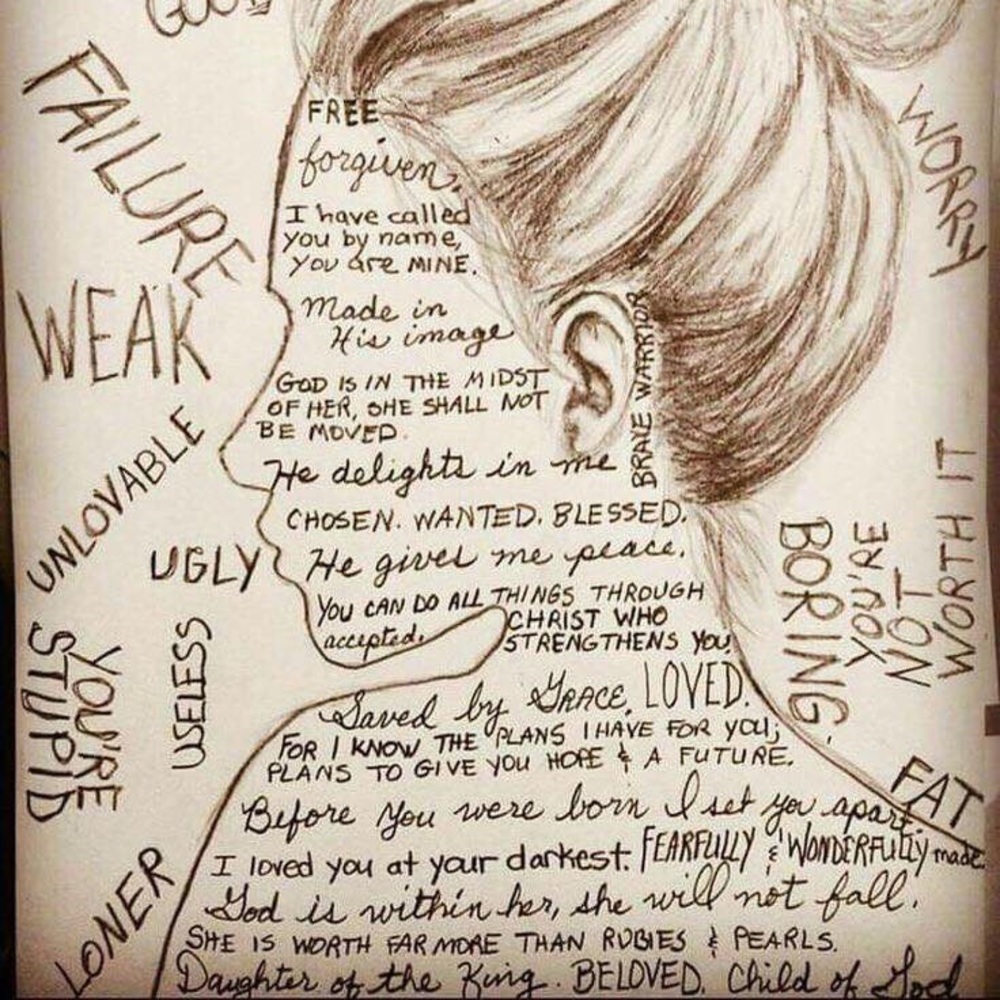 FAILURE
WEAK
UNLOVABLE
UGLY
USELESS
YOU'RE
STUPID
LONER
FREE
forgiven.
I have called
you by name,
you are MINE.
Made in
His image
GOD IS IN THE MIDST
OF HER, SHE SHALL NOT
BE MOVED.
He delights in me
BRAVE WARRIOR
CHOSEN. WANTED. BLESSED.
He gives me peace.
YOU CAN DO ALL THINGS THROUGH
CHRIST WHO
accepted.
STRENGTHENS YOU.
Saved by GRACE. LOVED.
FOR I KNOW THE PLANS I HAVE FOR YOU;
PLANS TO GIVE YOU HOPE & A FUTURE.
Before you were born I set you apart.
I loved you at your darkest. FEARFULLY & WONDERFULLY made
God is within her, she will not fall.
SHE IS WORTH FAR MORE THAN RUBIES & PEARLS.
Daughter of the King. BELOVED. Child of God
WORRY
YOU'RE
NOT
WORTH IT
BORING
FAT